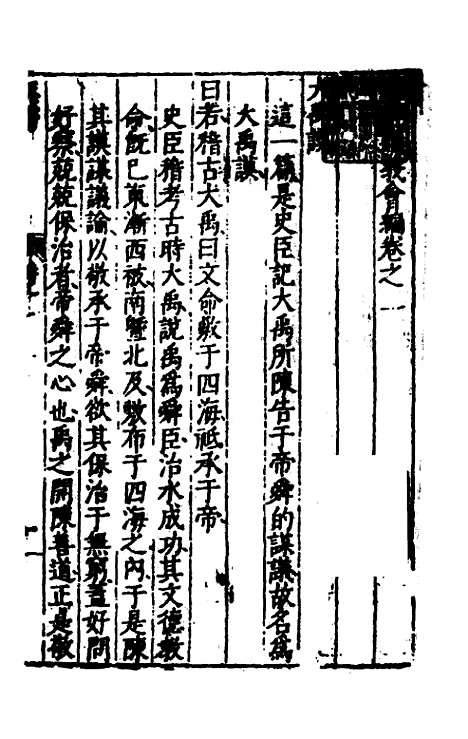 義會編卷之一
大禹謨
這一篇是史臣記大禹所陳告于帝舜的謀議故名為
大禹謨
曰若稽古大禹曰文命敷于四海祗承于帝
史臣稽考古時大禹說禹為舜臣治水成功其文德教
命既已東漸西被南暨北及敷布于四海之內于是陳
其謨謀議論以敬承于帝舜欲其保治于無窮蓋好問
好察兢兢保治者帝舜之心也禹之開陳善道正是敬